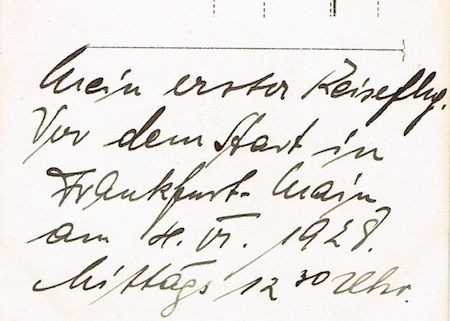 Mein erster Reiseflug.
Vor dem Start in
Frankfurt-Main
am 4. VI. 1928.
Mittags 12 30 Uhr.